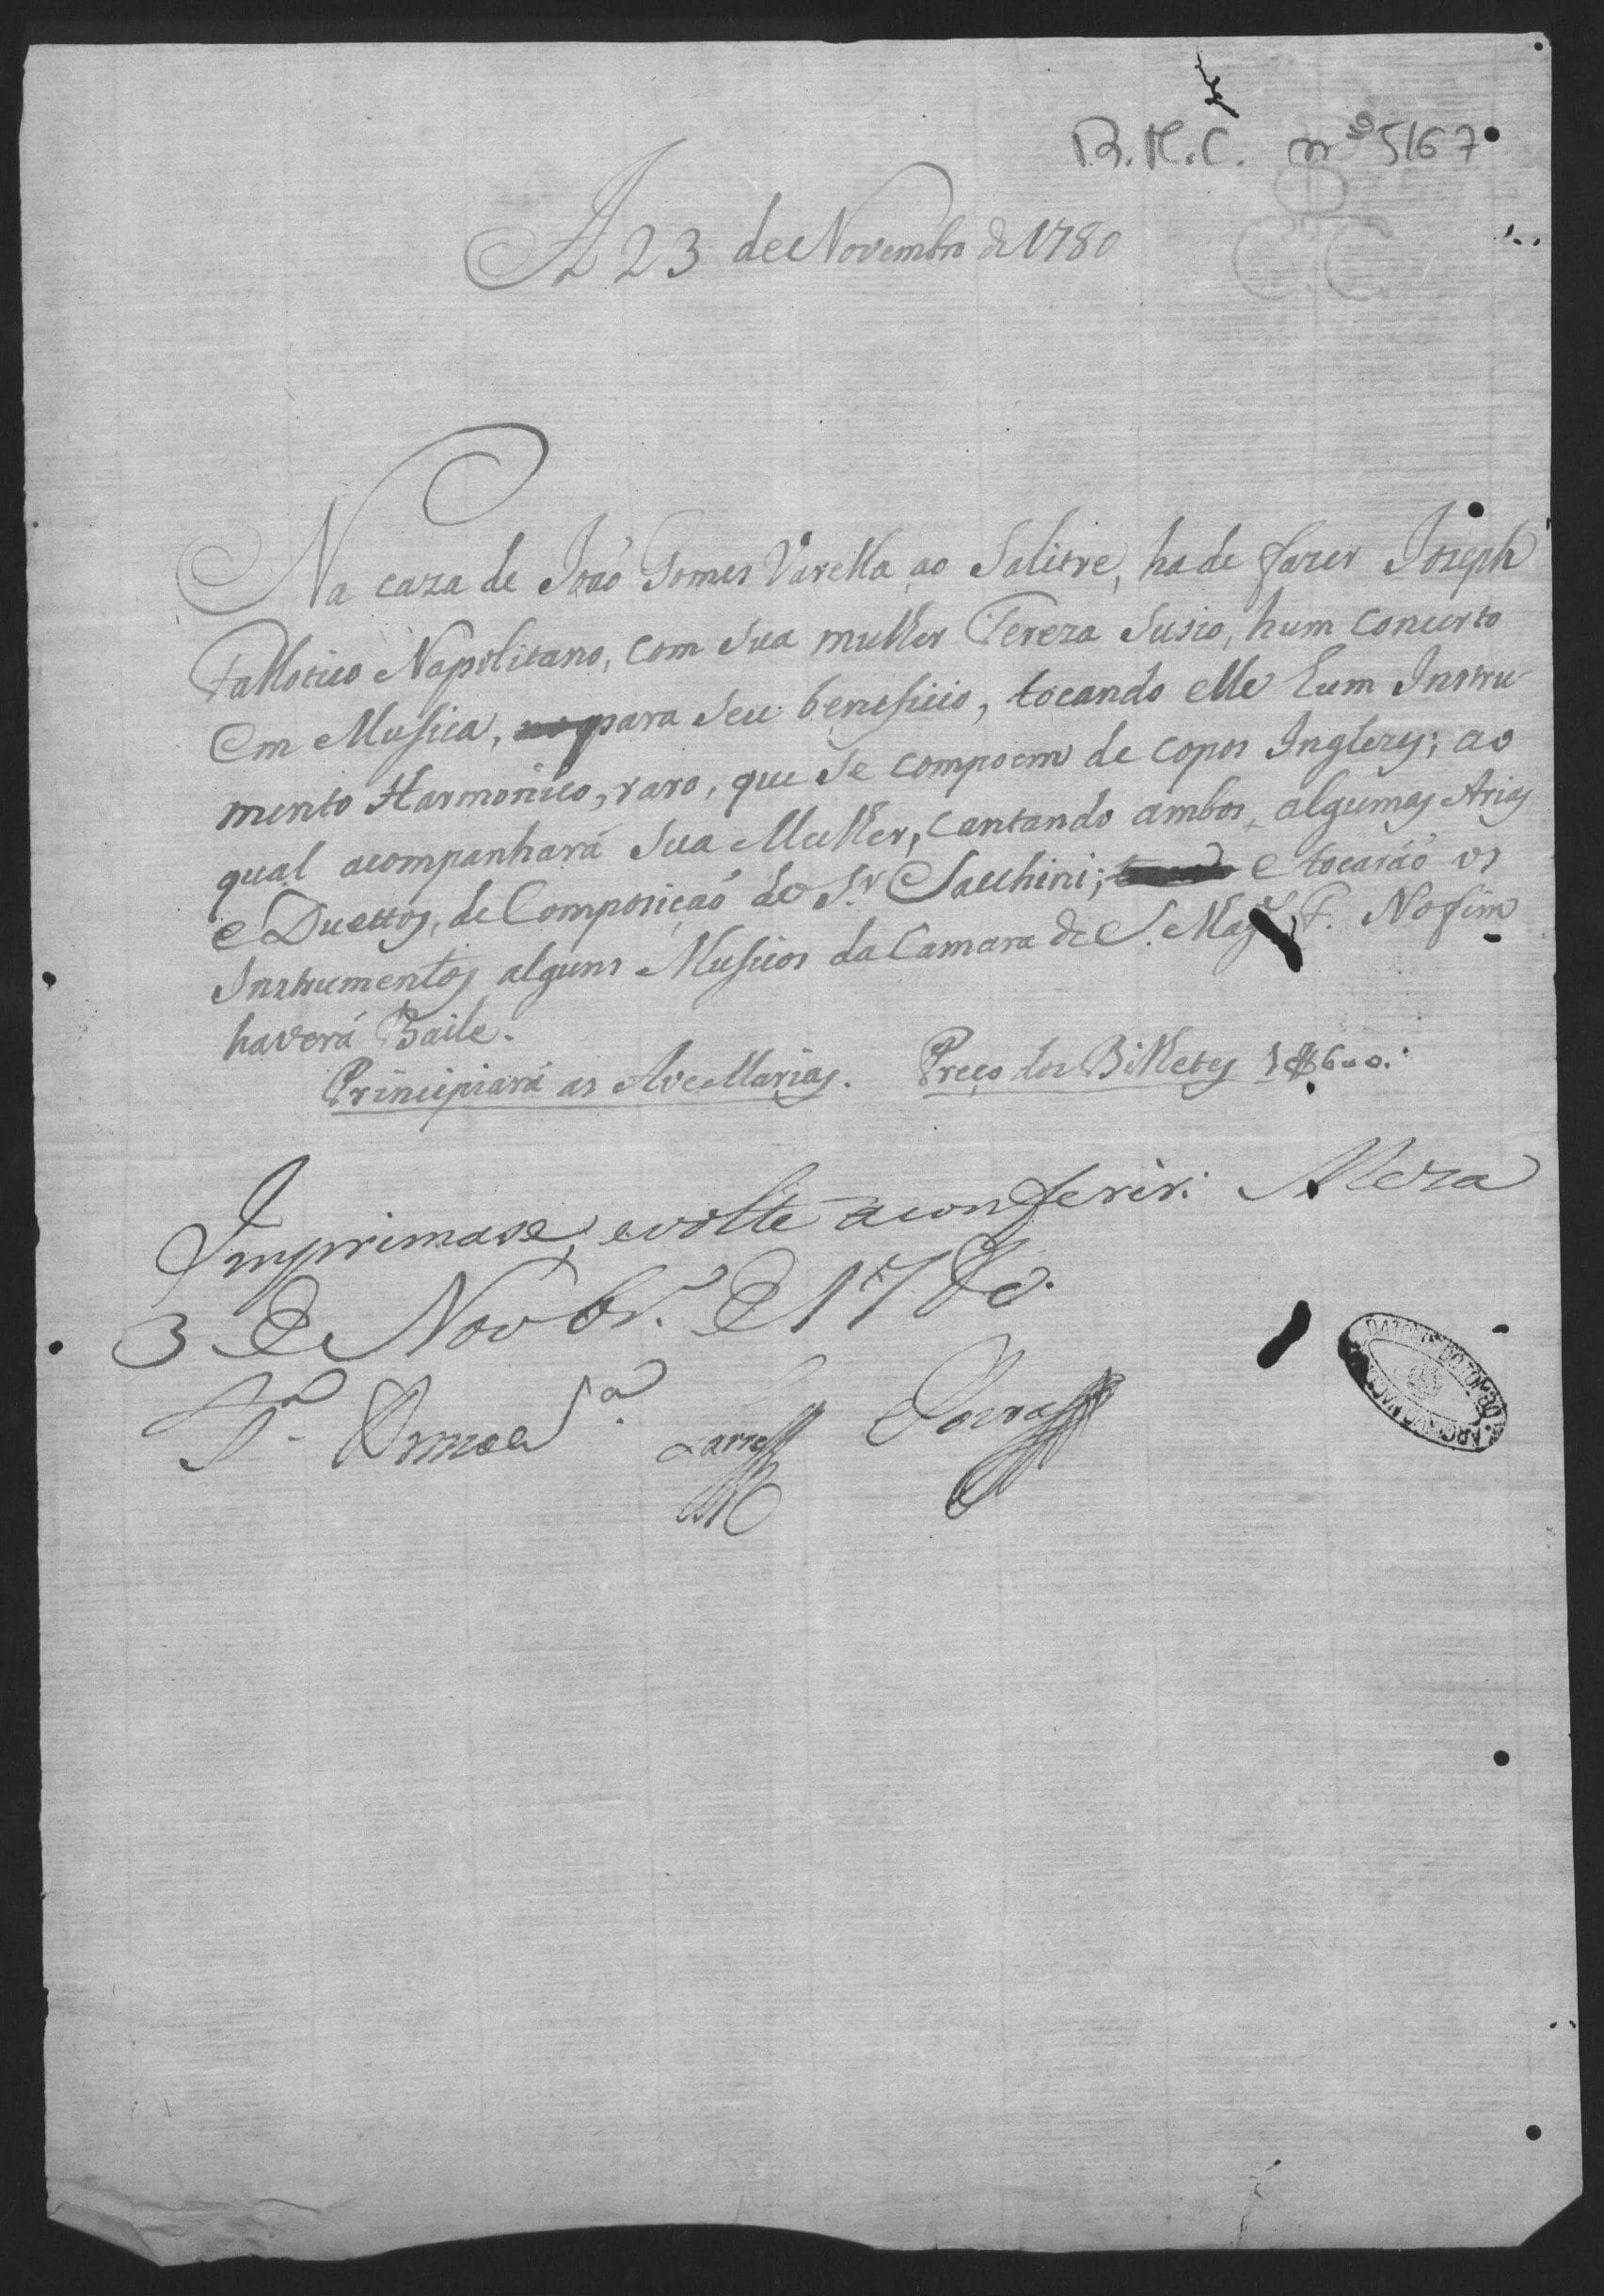 R.M.C. nº 5167
A 23 de Novembro de 1780
Na caza de João Gomes Varella, ao Salitre, hade fazer Joseph
Fallotico Napolitano, com sua mulher Tereza Susio, hum concerto
em Musica, para seu beneficio, tocando elle hum Instru-
mento Harmonico, raro, que se compoem de copos Inglezes; ao
qual acompanhará sua Mulher, cantando ambos, algumas Arias
e Duettos, de Composição do Sr. Sacchini; e tocarão os
Instrumentos alguns Musicos da Camara de S. Mag. F. No fim
haverá Baile.
Principiará as Ave Marias. Preço dos Bilhetes 1$600.
Imprimase, e volte a conferir. Meza
3 de Novbr.º de 1780.